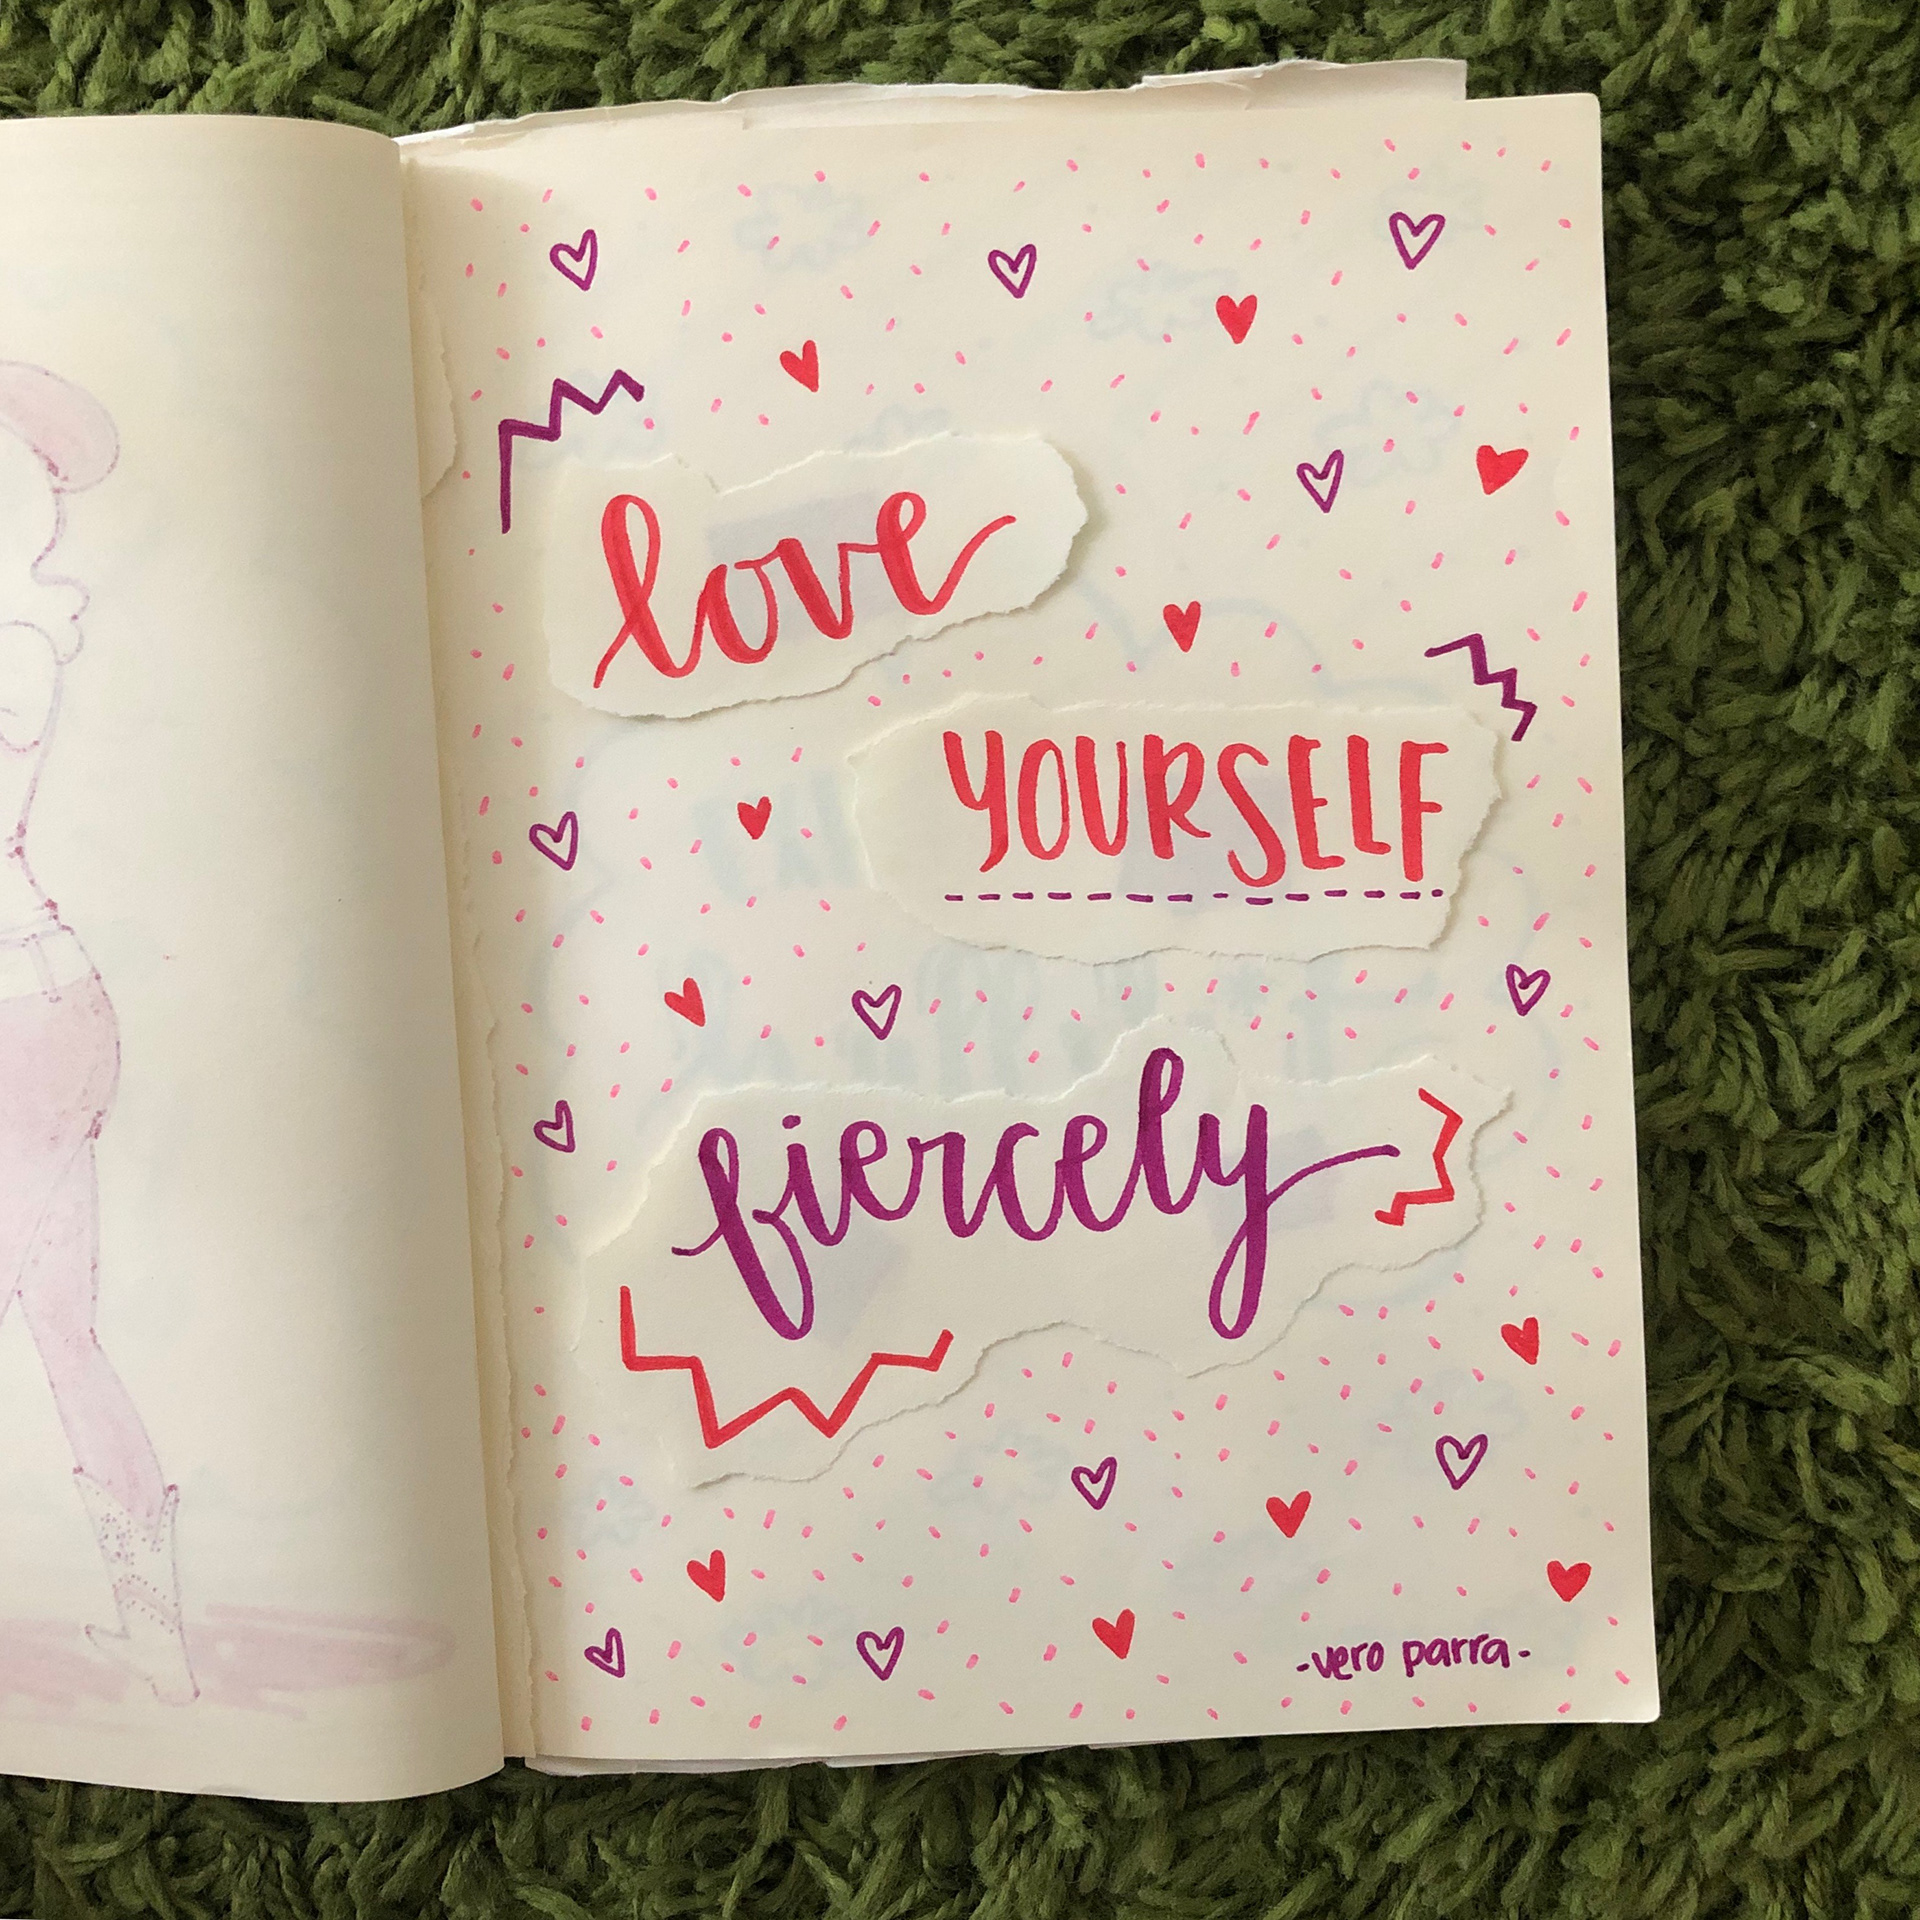 love
YOURSELF
fiercely
-vero parra-